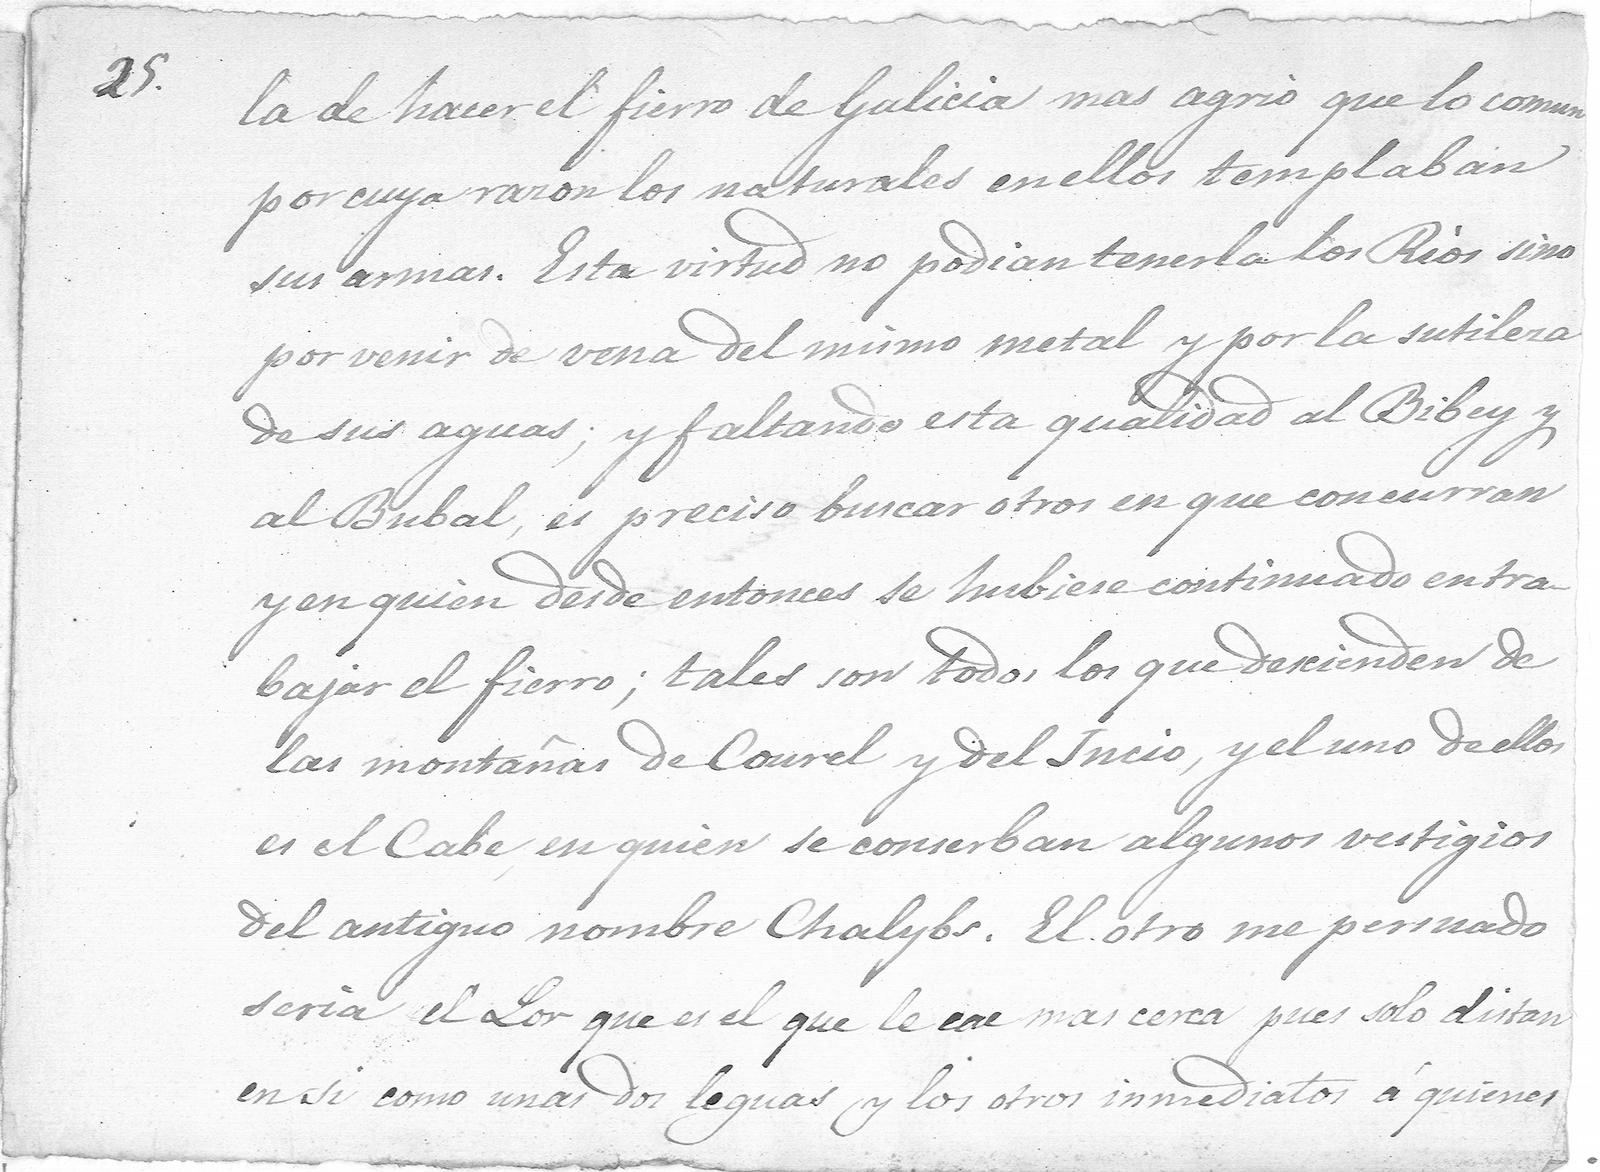 25.
la de hacer el fierro de Galicia mas agrio que lo comun
por cuya razon los naturales en ellos templaban
sus armas. Esta virtud no podian tenerla los Rios sino
por venir de vena del mismo metal y por la sutileza
de sus aguas; y faltando esta qualidad al Bibey y
al Bubal, es preciso buscar otros en que concurran
y en quien desde entonces se hubiese continuado en tra-
bajar el fierro; tales son todos los que descienden de
las montañas de Courel y del Incio, y el uno de ellos
es el Cabe, en quien se conserban algunos vestigios
del antiguo nombre Chalybs. El otro me persuado
seria el Lor que es el que le cae mas cerca pues solo distan
en si como unas dos leguas y los otros inmediatos á quienes